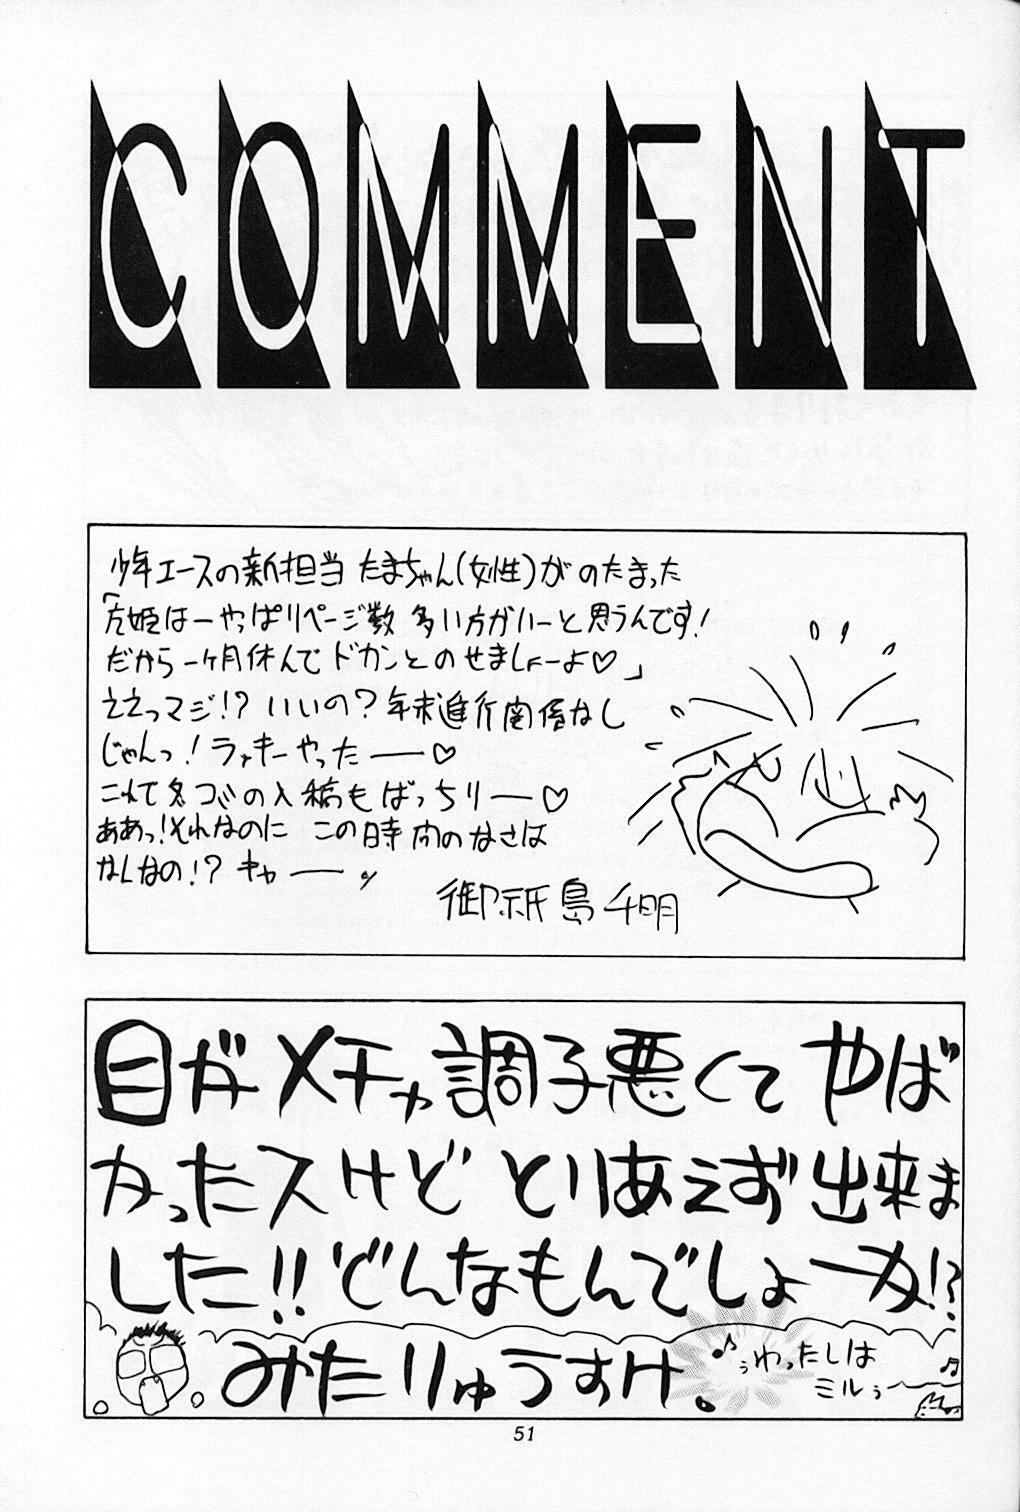 COMMENT
少年エースの新担当 たまちゃん(女性)がのたまった
「左姫は一やっぱりページ数 多い方がいーと思うんです!
だから一ヶ月休んで ドカンとのせましょーよ♡」
ええっマジ!? いいの? 年末進行関係なし
じゃんっ! ラッキーやったー♡
これで冬コミの入稿もばっちりー♡
ああっ!それなのに この時間のなさは
なんなの!? キャー
御祇島千明
目がメチャ調子悪くて やば
かったスけど とりあえず出来ま
した!! どんなもんでしょーか!?
みたりゅうすけ
♪ぅわったしは
ミルぅ〜♫
51